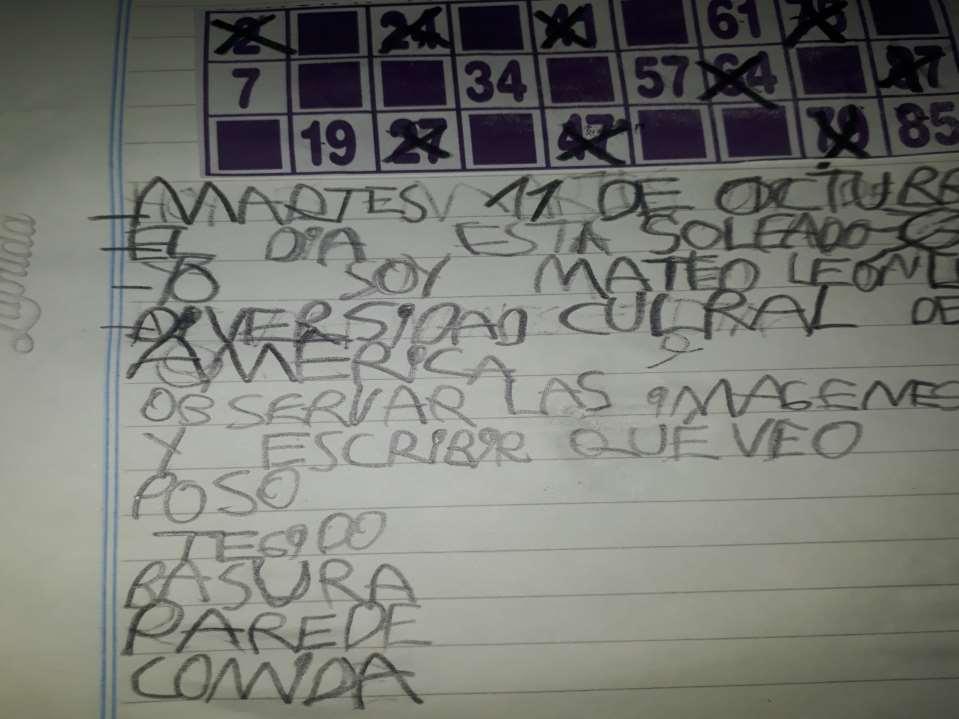 2 24 41 61 76
7 34 57 64 87
19 27 47 79 85
MARTES 11 DE OCTUBR
EL DIA ESTA SOLEADO
YO SOY MATEO LEÓN
DIVERSIDAD CULRAL DE
AMERICA
OBSERVAR LAS IMAGENES
Y ESCRIBIR QUE VEO
POSO
TEGIDO
BASURA
PAREDE
COMIDA
Laprida